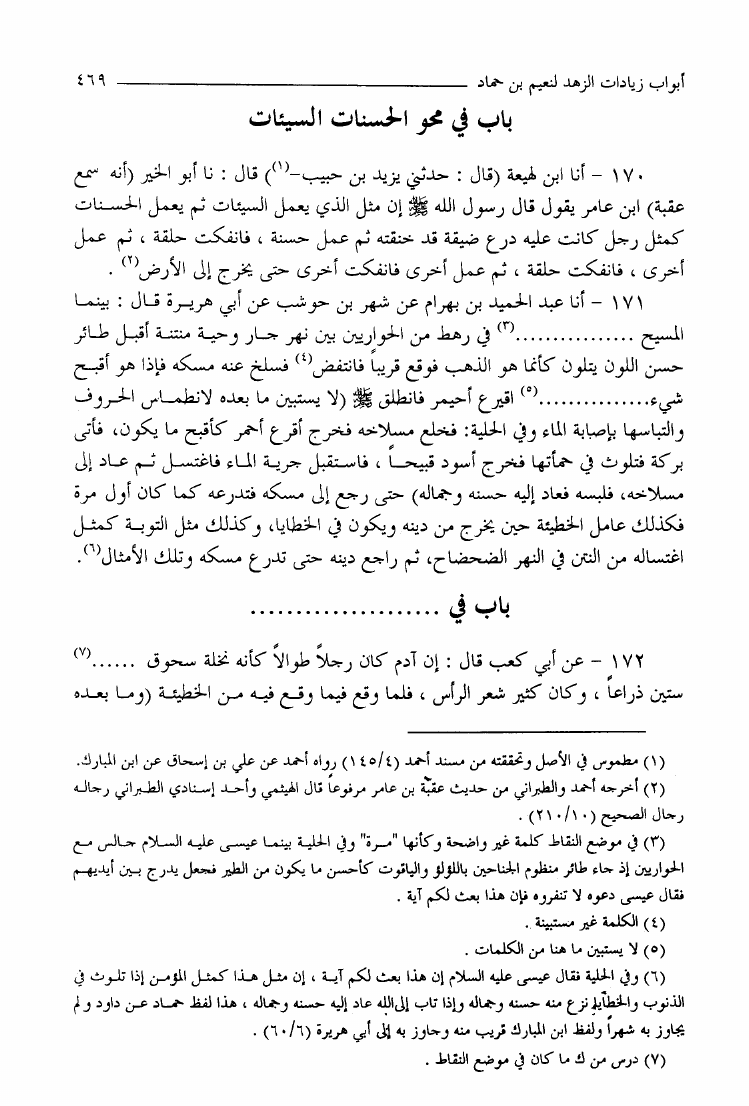 أبواب زيادات الزهد لنعيم بن حماد ـــــــــــــــــــــــ ٤٦٩
باب في محو الحسنات السيئات
١٧٠ – أنا ابن لهيعة (قال : حدثني يزيد بن حبيب–(١)) قال : نا أبو الخير (أنه سمع
عقبة) ابن عامر يقول قال رسول الله ﷺ إن مثل الذي يعمل السيئات ثم يعمل الحسنات
كمثل رجل كانت عليه درع ضيقة قد خنقته ثم عمل حسنة ، فانفكت حلقة ، ثم عمل
أخرى ، فانفكت حلقة ، ثم عمل أخرى فانفكت أخرى حتى يخرج إلى الأرض(٢) .
١٧١ – أنا عبد الحميد بن بهرام عن شهر بن حوشب عن أبي هريرة قال : بينما
المسيح ................(٣) في رهط من الحواريين بين نهر جار وحية منتنة أقبل طائر
حسن اللون يتلون كأنما هو الذهب فوقع قريباً فانتفض(٤) فسلخ عنه مسكه فإذا هو أقبح
شيء...............(٥) اقيرع أحيمر فانطلق ﷺ (لا يستبين ما بعده لانطماس الحروف
والتباسها بإصابة الماء وفي الحلية: فخلع مسلاخه فخرج أقرع أحمر كأقبح ما يكون، فأتى
بركة فتلوث في حمأتها فخرج أسود قبيحاً ، فاستقبل جرية الماء فاغتسل ثم عاد إلى
مسلاخه، فلبسه فعاد إليه حسنه وجماله) حتى رجع إلى مسكه فتدرعه كما كان أول مرة
فكذلك عامل الخطيئة حين يخرج من دينه ويكون في الخطايا، وكذلك مثل التوبة كمثل
اغتساله من النتن في النهر الضحضاح، ثم راجع دينه حتى تدرع مسكه وتلك الأمثال(٦).
باب في .....................
١٧٢ – عن أبي كعب قال : إن آدم كان رجلاً طوالاً كأنه نخلة سحوق ......(٧)
ستين ذراعاً ، وكان كثير شعر الرأس ، فلما وقع فيما وقع فيه من الخطيئة (وما بعده
(١) مطموس في الأصل وتحققته من مسند أحمد (١٤٥/٤) رواه أحمد عن علي بن إسحاق عن ابن المبارك.
(٢) أخرجه أحمد والطبراني من حديث عقبة بن عامر مرفوعاً قال الهيثمي وأحد إسنادي الطبراني رجاله
رجال الصحيح (٢١٠/١٠) .
(٣) في موضع النقاط كلمة غير واضحة وكأنها "مرة" وفي الحلية بينما عيسى عليه السلام جالس مع
الحواريين إذ جاء طائر منظوم الجناحين باللؤلؤ والياقوت كأحسن ما يكون من الطير فجعل يدرج بين أيديهم
فقال عيسى دعوه لا تنفروه فإن هذا بعث لكم آية .
(٤) الكلمة غير مستبينة .
(٥) لا يستبين ما هنا من الكلمات .
(٦) وفي الحلية فقال عيسى عليه السلام إن هذا بعث لكم آية ، إن مثل هذا كمثل المؤمن إذا تلوث في
الذنوب والخطايا نزع منه حسنه وجماله وإذا تاب إلى الله عاد إليه حسنه وجماله ، هذا لفظ حماد عن داود ولم
يجاوز به شهراً ولفظ ابن المبارك قريب منه وجاوز به إلى أبي هريرة (٦٠/٦) .
(٧) درس من ك ما كان في موضع النقاط .